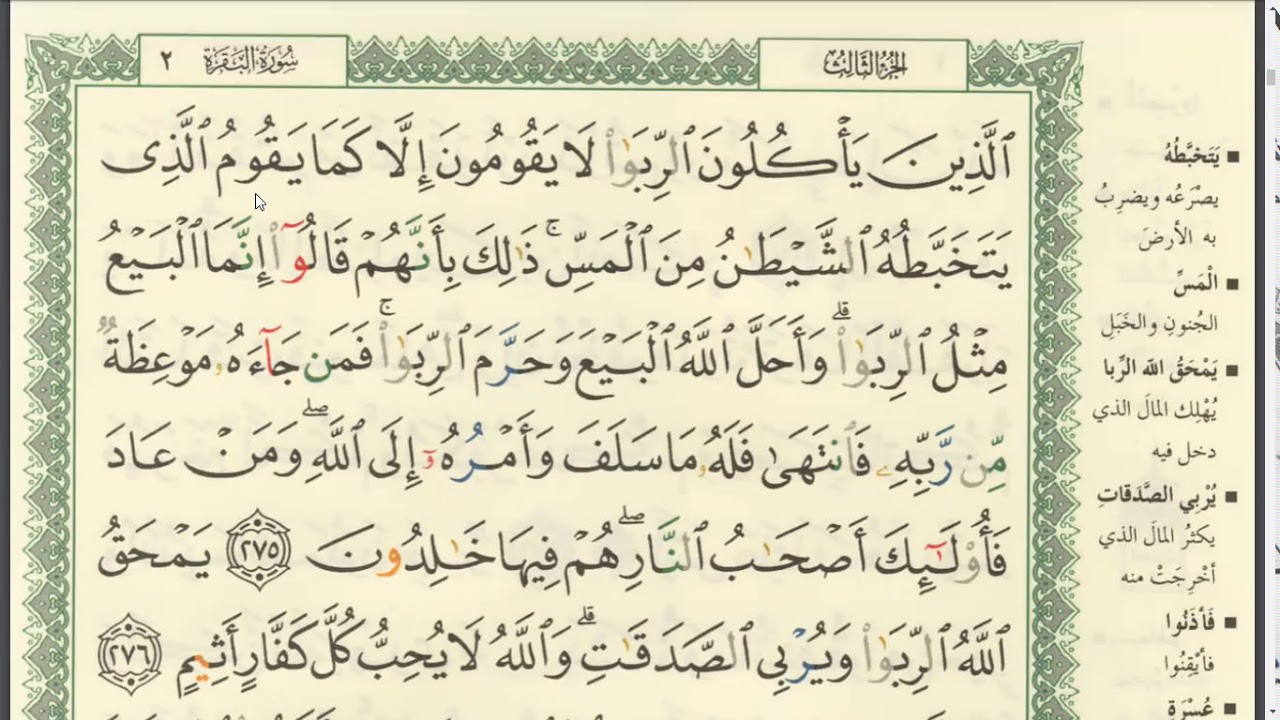 الجزء الثالث
سورة البقرة ٢
ٱلَّذِينَ يَأْكُلُونَ ٱلرِّبَوٰا۟ لَا يَقُومُونَ إِلَّا كَمَا يَقُومُ ٱلَّذِى
يَتَخَبَّطُهُ ٱلشَّيْطَـٰنُ مِنَ ٱلْمَسِّ ۚ ذَٰلِكَ بِأَنَّهُمْ قَالُوٓا۟ إِنَّمَا ٱلْبَيْعُ
مِثْلُ ٱلرِّبَوٰا۟ ۗ وَأَحَلَّ ٱللَّهُ ٱلْبَيْعَ وَحَرَّمَ ٱلرِّبَوٰا۟ ۚ فَمَن جَآءَهُۥ مَوْعِظَةٌ
مِّن رَّبِّهِۦ فَٱنتَهَىٰ فَلَهُۥ مَا سَلَفَ وَأَمْرُهُۥٓ إِلَى ٱللَّهِ ۖ وَمَنْ عَادَ
فَأُو۟لَـٰٓئِكَ أَصْحَـٰبُ ٱلنَّارِ ۖ هُمْ فِيهَا خَـٰلِدُونَ ٢٧٥ يَمْحَقُ
ٱللَّهُ ٱلرِّبَوٰا۟ وَيُرْبِى ٱلصَّدَقَـٰتِ ۗ وَٱللَّهُ لَا يُحِبُّ كُلَّ كَفَّارٍ أَثِيمٍ ٢٧٦
■ يَتَخَبَّطُهُ
يصْرَعُه ويضرِبُ
به الأرضَ
■ الْمَسِّ
الجُنونِ والخَبَلِ
■ يَمْحَقُ الله الرِّبا
يُهْلِك المالَ الذي
دخل فيه
■ يُرْبِي الصَّدَقاتِ
يكثرُ المالَ الذي
أخْرِجَتْ منه
■ فَأذَنُوا
فأيْقِنُوا
■ عُسْرَةٍ